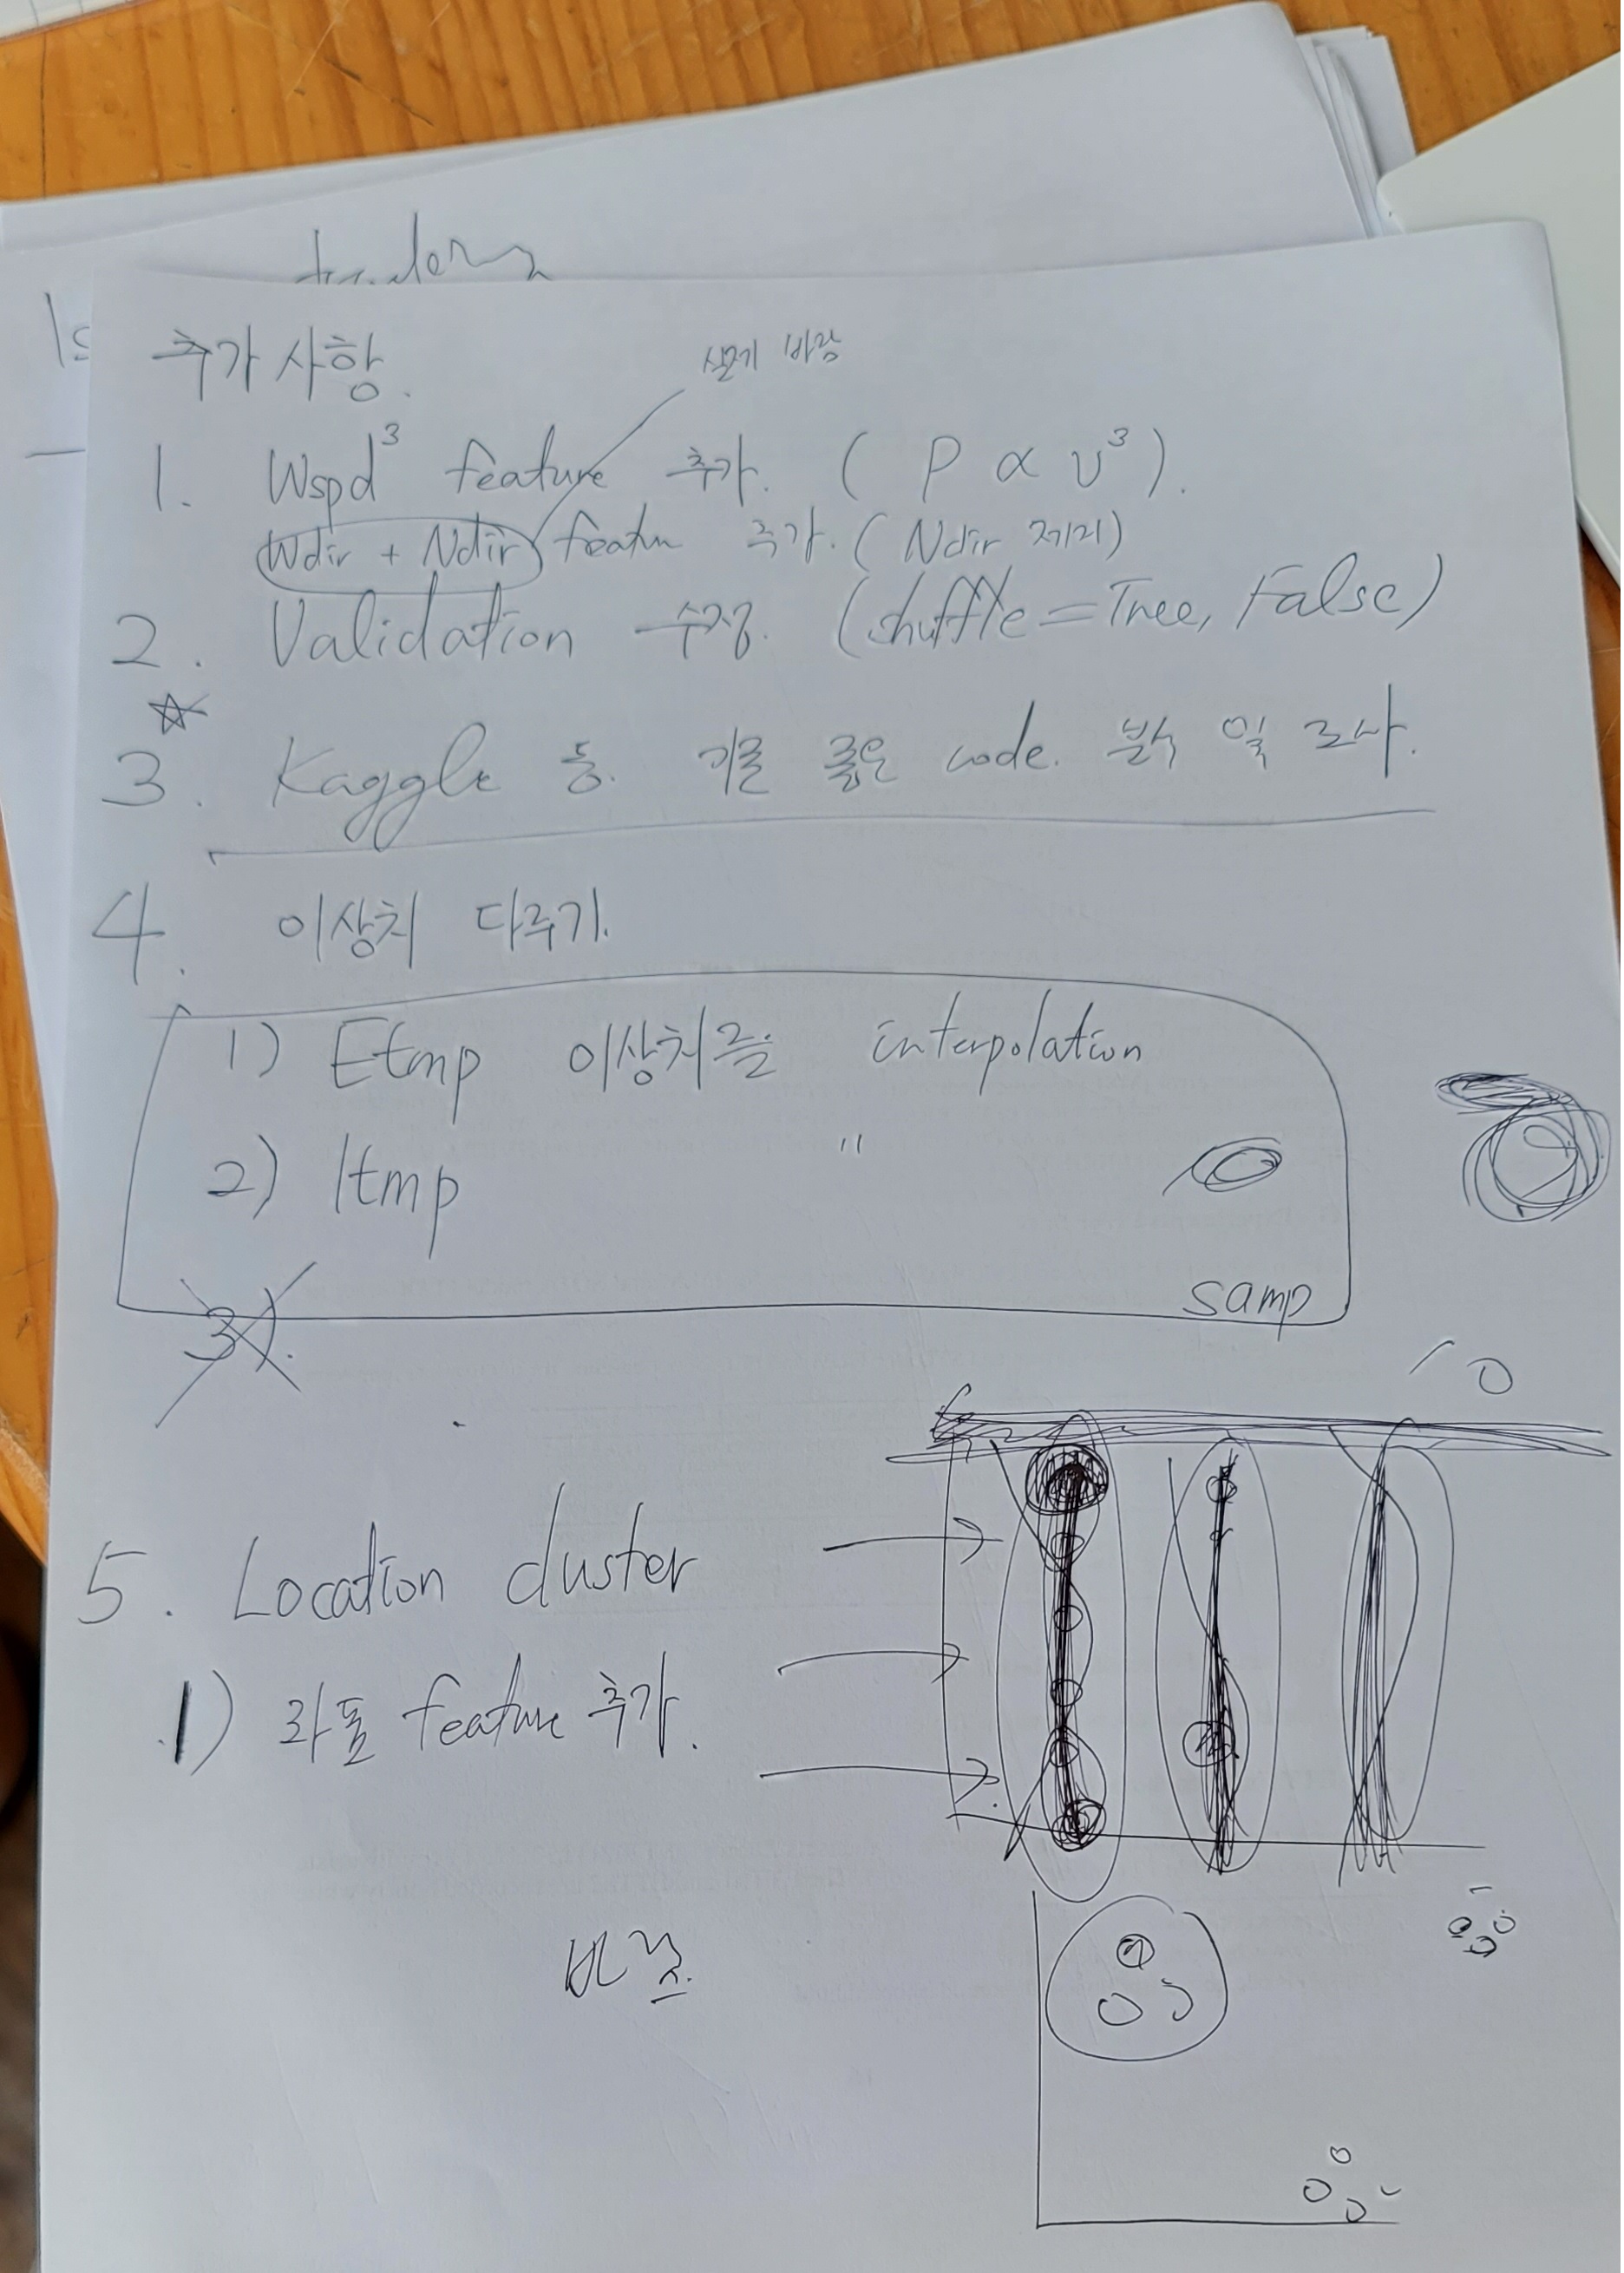 추가 사항.
실제 바람
1. Wspd³ feature 추가. ( P ∝ v³ ).
Wdir + Ndir feature 추가. ( Ndir 제거)
2. Validation 수정. (shuffle = True, False)
☆
3. Kaggle 등. 기존 좋은 code. 분석 및 조사.
4. 이상치 다루기.
1) Etmp 이상치를 interpolation
2) Itmp "
samp
3).
5. Location cluster
1) 라돔 feature 추가.